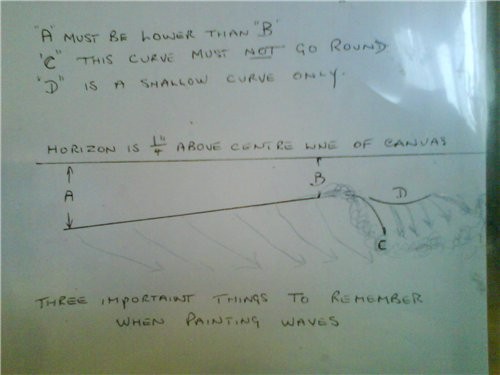 "A" MUST BE LOWER THAN "B"
"C" THIS CURVE MUST NOT GO ROUND
"D" IS A SHALLOW CURVE ONLY.
HORIZON IS 1/4" ABOVE CENTRE LINE OF CANVAS
A
B
D
C
THREE IMPORTAINT THINGS TO REMEMBER
WHEN PAINTING WAVES